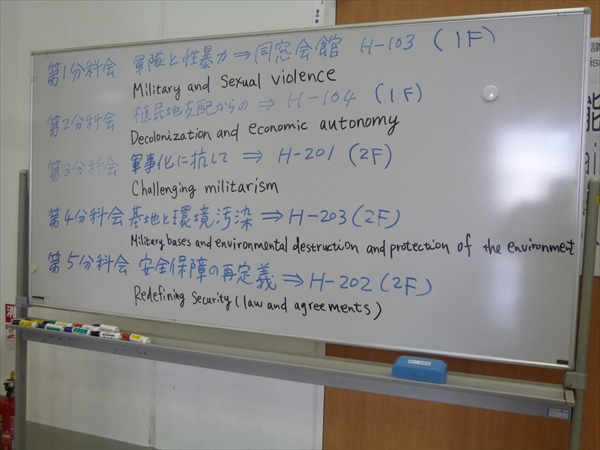 第1分科会 軍隊と性暴力⇒同窓会館 H-103 (1F)
Military and Sexual violence
第2分科会 植民地支配からの⇒ H-104 (1F)
Decolonization and economic autonomy
第3分科会 軍事化に抗して ⇒ H-201 (2F)
Challenging militarism
第4分科会 基地と環境汚染⇒H-203(2F)
Military bases and environmental destruction and protection of the environment
第5分科会 安全保障の再定義⇒H-202(2F)
Redefining Security (law and agreements)
能